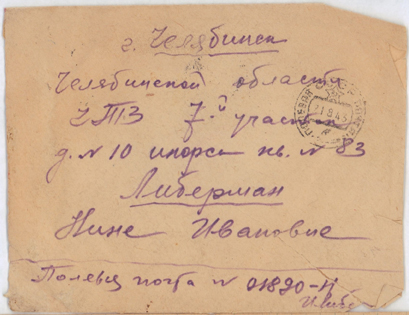 г. Челябинск
Челябинской области
ЧТЗ 7-й участок
д. № 10 кв. № 83
Либерман
Нине Ивановне
Полевая почта № 01890-